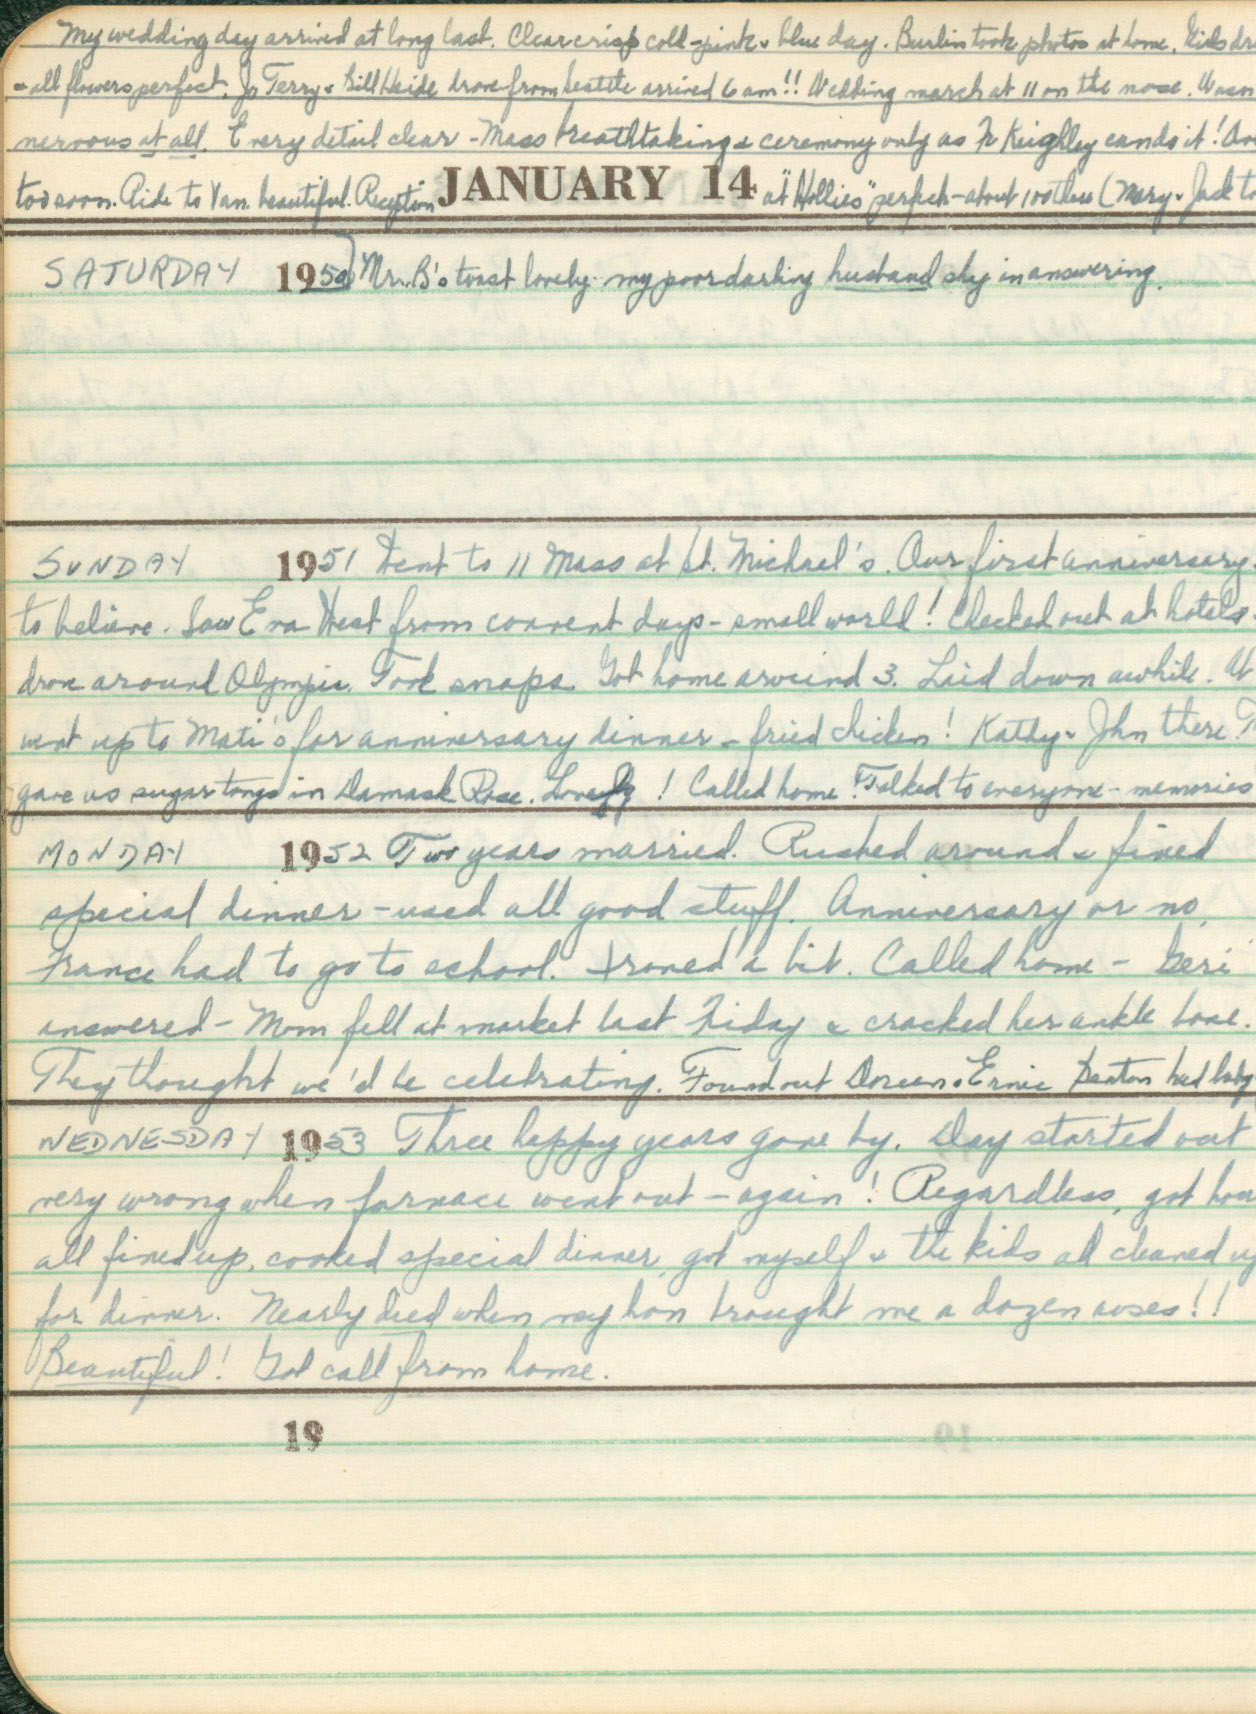 My wedding day arrived at long last. Clear crisp cold - pink & blue day. Burlin took photos at home. Kids dr
- all flowers perfect. Jo Terry & Bill Heide drove from Seattle arrived 6 am!! Wedding march at 11 on the nose. Wasn
nervous at all. Every detail clear - Mass breathtaking & ceremony only as Fr Keighley can do it!
too soon. Ride to Van. beautiful. Reception JANUARY 14 at "Hollies" perfect - about 100 there (Mary & Jack
SATURDAY 1950 Mr. B's toast lovely my poor darling husband shy in answering.
SUNDAY 1951 Went to 11 Mass at St. Michael's. Our first anniversary
to believe. Saw Eva West from convent days - small world! Checked out at hotel &
drove around Olympia. Took snaps. Got home around 3. Laid down awhile. W
went up to Mati's for anniversary dinner - fried chicken! Kathy & John there.
gave us sugar tongs in Damask Rose. Lovely! Called home. Talked to everyone - memories
MONDAY 1952 Two years married. Rushed around & fixed
special dinner - used all good stuff. Anniversary or no,
France had to go to school. Ironed a bit. Called home - Geri
answered - Mom fell at market last Friday & cracked her ankle bone.
They thought we'd be celebrating. Found out Doreen & Ernie had baby
WEDNESDAY 1953 Three happy years gone by. Day started out
very wrong when furnace went out - again! Regardless, got hou
all fixed up, cooked special dinner, got myself & the kids all cleaned up
for dinner. Nearly died when my hon brought me a dozen roses!!
Beautiful! Got call from home.
19